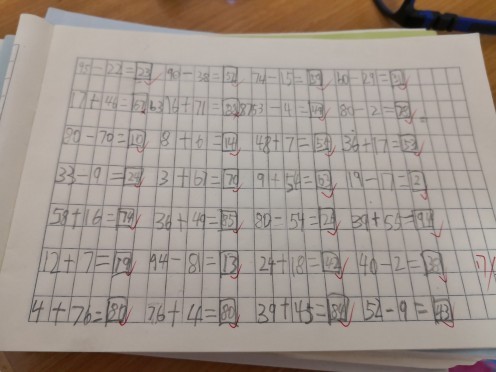 45-22=23 90-38=52 74-15=59 60-29=31
17+46=63 16+71=87 53-4=49 80-2=78
90-70=20 8+6=14 48+7=55 36+17=53
33-9=24 3+67=70 9+54=63 19-17=2
58+16=74 36+49=85 80-54=26 39+55=94
12+7=19 94-81=13 24+18=42 40-2=38
4+76=80 76+4=80 39+45=84 52-9=43